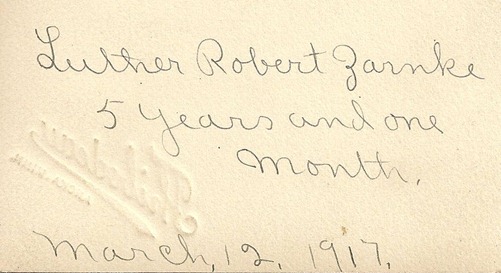 Luther Robert Zarnke
5 years and one
Month.
March, 12, 1917.